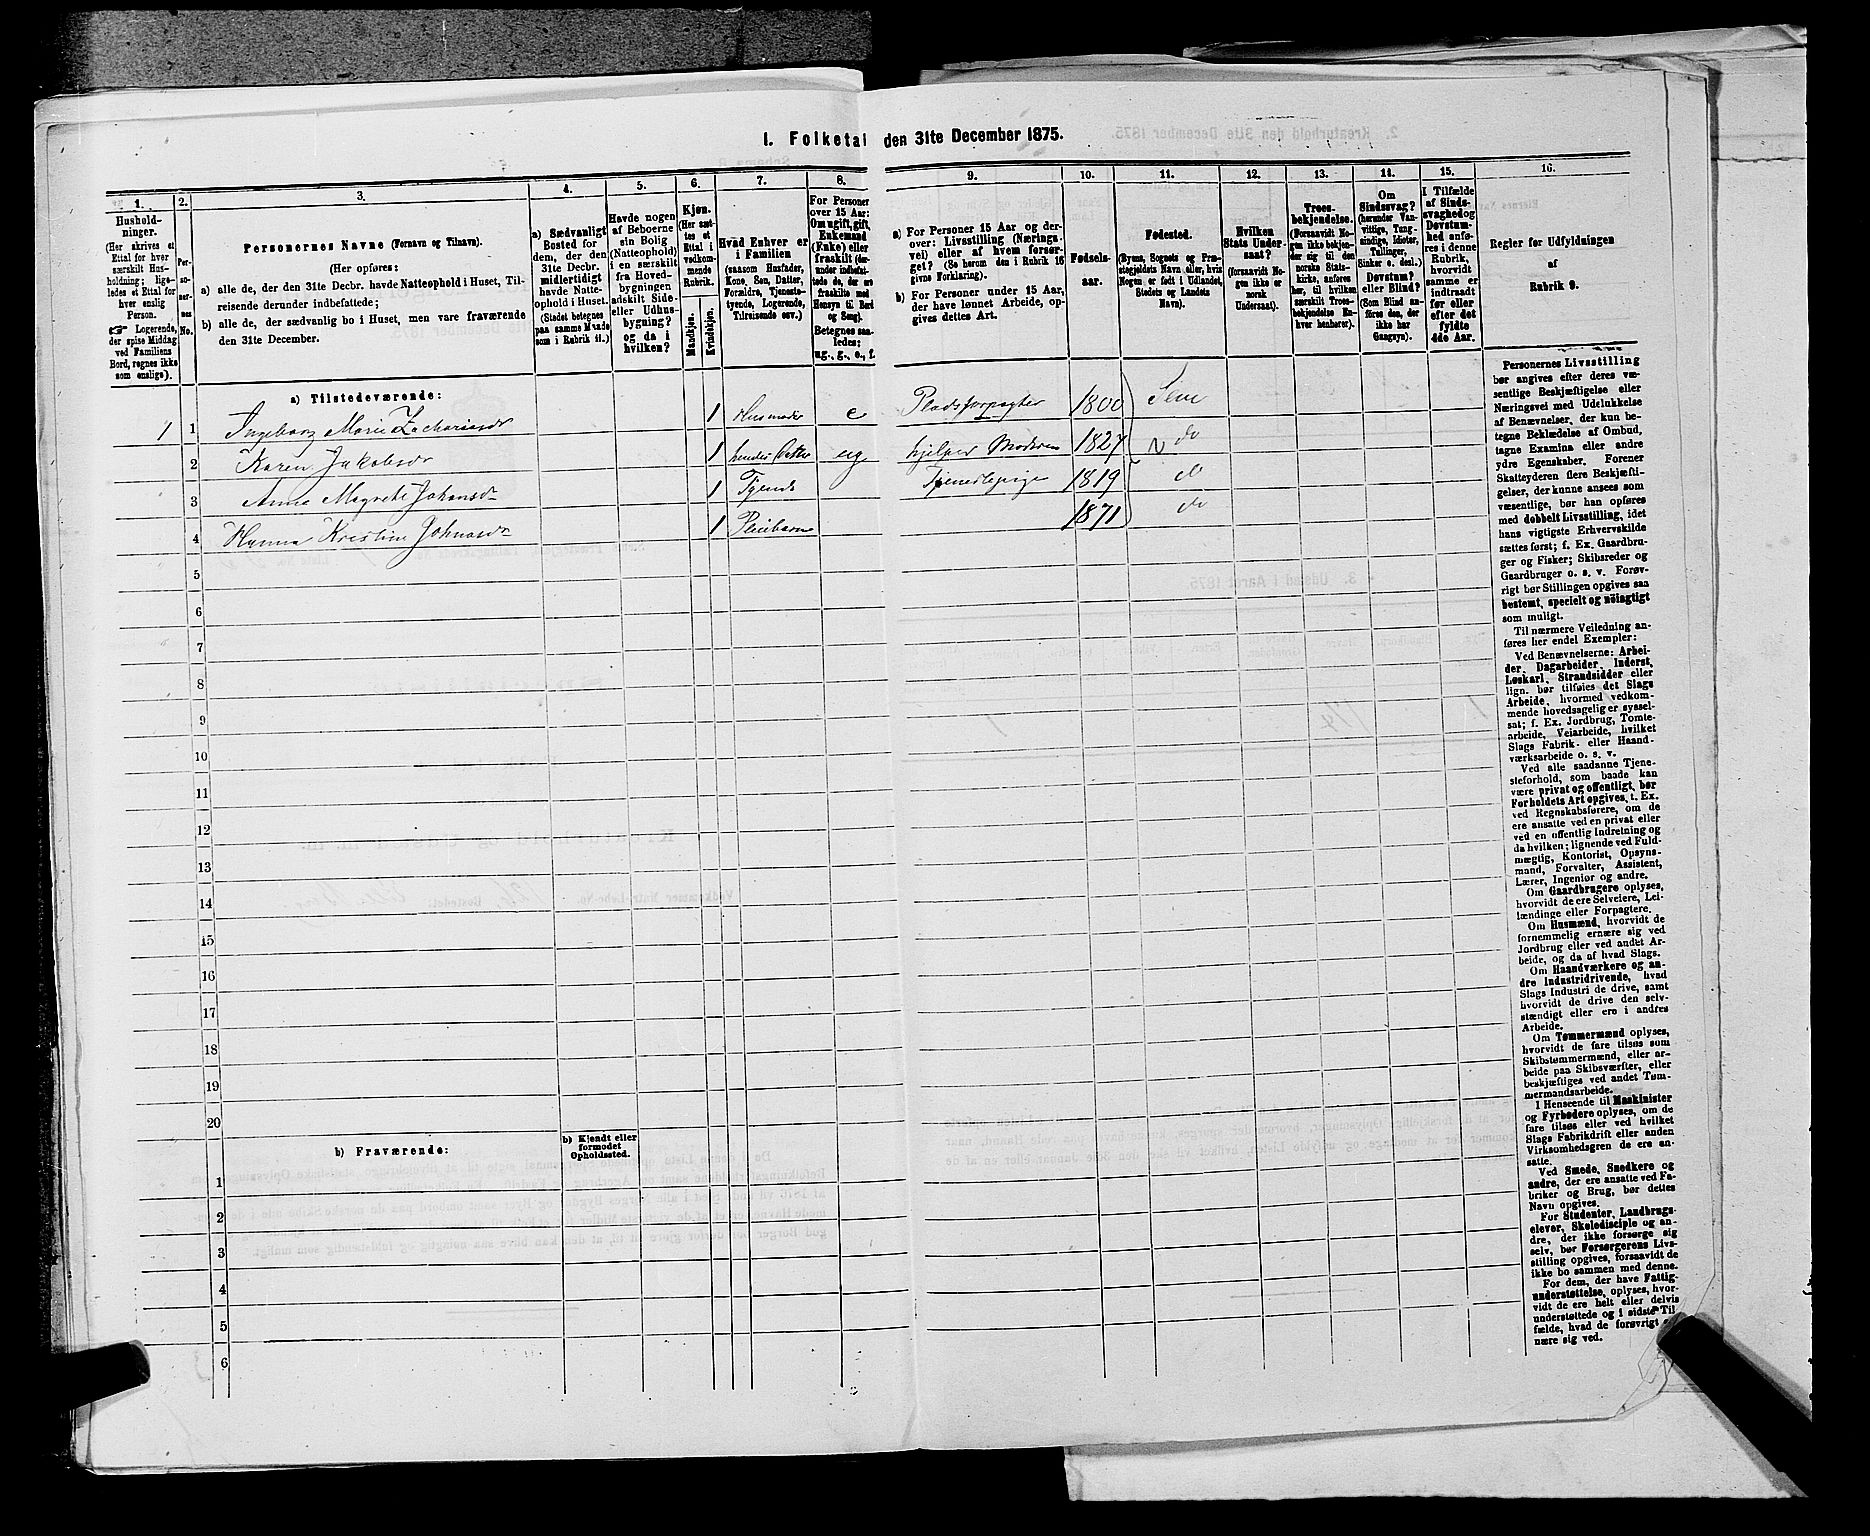 1. Folketal den 31te December 1875.
1. 2. 3. 4. 5. 6. 7. 8. 9. 10. 11. 12. 13. 14. 15. 16.
Hushold-
ninger.
(Her skrives et
Ettal for hver
særskilt Hus-
holdning; lige-
ledes et Ettal for
hver enslig
Person.
☞ Logerende,
der spise Middag
ved Familiens
Bord, regnes ikke
som enslige).
Per-
so-
ner-
nes
No.
Personernes Navne (Fornavn og Tilnavn).
(Her opføres:
a) alle de, der den 31te Decbr. havde Natteophold i Huset, Til-
reisende derunder indbefattede;
b) alle de, der sædvanlig bo i Huset, men vare fraværende
den 31te December.
a) Sædvanligt
Bosted for
dem, der den
31te Decbr.
midlertidigt
havde Natte-
ophold i Huset.
(Stedet betegnes
paa samme Maade
som i Rubrik 11.)
Havde nogen
af Beboerne
sin Bolig
(Natteophold)
i en særskilt
fra Hoved-
bygningen
adskilt Side-
eller Udhus-
bygning?
og da i
hvilken?
Kjøn.
(Her sæt-
tes et
Ettal i
vedkom-
mende
Rubrik.
Mandkjøn.
Kvindekjøn.
Hvad Enhver er
i Familien
(saasom Husfader,
Kone, Søn, Datter,
Forældre, Tjeneste-
tyende, Logerende,
Tilreisende osv.)
For Personer
over 15 Aar:
Om ugift, gift,
Enkemand
(Enke) eller
fraskilt (der-
under indbefat-
tede de, der ere
fraskilte med
Hensyn til Bord
og Seng).
Betegnes saa-
ledes:
ug., g., e., f.
a) For Personer 15 Aar og der-
over: Livsstilling (Nærings-
vei) eller af hvem forsør-
get? (Se herom den i Rubrik 16
givne Forklaring).
b) For Personer under 15 Aar,
der have lønnet Arbeide, op-
gives dettes Art.
Fødsels-
aar.
Fødested.
(Byens, Sognets og Præ-
stegjeldets Navn, eller, hvis
Nogen er født i Udlandet,
Stedets og Landets
Navn).
Hvilken
Stats Under-
saat?
(forsaavidt No-
gen ikke er
norsk
Undersaat).
Troes-
bekjendelse.
(Forsaavidt No-
gen ikke bekjen-
der sig til den
norske Stats-
kirke, anføres
her, til hvilken
særskilt Troes-
bekjendelse En-
hver henhører).
Om
Sindssvag?
(herunder Van-
vittige, Tung-
sindige, Idioter,
Tullinger,
Sinker o. desl.)
Døvstum?
eller Blind?
(Som Blind an-
føres den, der
ikke har
Gangsyn).
I Tilfælde
af Sinds-
svaghed og
Døvstum-
hed anfø-
res i denne
Rubrik,
hvorvidt
samme er
indtraadt
før eller
efter det
fyldte
4de Aar.
Regler for Udfyldningen
af
Rubrik 9.
a) Tilstedeværende:
1 1 Ingeborg Marie Zachariasdr 1 Husmoder e Pladsforpagter 1800
2 Karen Jakobsdr 1 hendes Datter ug hjelper Moderen 1827 do
3 Anna Magrete Johansdr 1 Tyende Tjenestepige 1819 do
4 Hanna Kristine Johnasdr 1 Pleiebarn 1871 do
5
6
7
8
9
10
11
12
13
14
15
16
17
18
19
20
b) Fraværende:
b) Kjendt eller
formodet
Opholdssted.
1
2
3
4
5
6
Personernes Livsstilling
bør angives efter deres væ-
sentlige Beskjæftigelse eller
Næringsvei med Udelukkelse
af Benævnelser, der kun be-
tegne Beklædelse af Ombud,
tagne Examina eller andre
ydre Egenskaber. Forener
Skatteyderen flere Beskjæfti-
gelser, der kunne ansees som
væsentlige, bør han opføres
med dobbelt Livsstilling, idet
hans vigtigste Erhvervskilde
sættes først; f. Ex. Gaardbru-
ger og Fisker; Skibsreder og
Gaardbruger o. s. v. Forøv-
rigt bør Stillingen opgives saa
bestemt, specielt og nöiagtigt
som muligt.
Til nærmere Veiledning an-
føres her endel Exempler:
Ved Benævnelserne: Arbei-
der, Dagarbeider, Inderst,
Løskarl, Strandsidder eller
lign. bør tilføies det Slags
Arbeide, hvormed vedkom-
mende hovedsagelig er syssel-
sat; f. Ex. Jordbrug, Tomte-
arbeide, Veiarbeide, hvilket
Slags Fabrik- eller Haand-
værksarbeide o. s. v.
Ved alle saadanne Tjene-
steforhold, som baade kan
være privat og offentligt, bør
Forholdets Art opgives, t. Ex.
ved Regnskabsførere, om de
ere ansatte ved en privat eller
ved en offentlig Indretning og
da hvilken; lignende ved Fuld-
mægtig, Kontorist, Opsyns-
mand, Forvalter, Assistent,
Lærer, Ingeniør og andre.
Om Gaardbrugere oplyses,
hvorvidt de ere Selveiere, Lei-
lændinge eller Forpagtere.
Om Husmænd, hvorvidt de
fornemmelig ernære sig ved
Jordbrug eller ved andet Ar-
beide, og da af hvad Slags.
Om Haandværkere og an-
dre Industridrivende, hvad
Slags Industri de drive, samt
hvorvidt de drive den selv-
stændigt eller ere i andres
Arbeide.
Om Tømmermænd oplyses,
hvorvidt de fare tilsøs som
Skibstømmermænd, eller ar-
beide paa Skibsværfter, eller
beskjæftiges ved andet Tøm-
mermandsarbeide.
I Henseende til Maskinister
og Fyrbødere oplyses, om de
fare tilsøs eller ved hvilket
Slags Fabrikdrift eller anden
Virksomhedsgren de ere an-
satte.
Ved Smede, Snedkere og
andre, der ere ansatte ved Fa-
briker og Brug, bør dettes
Navn opgives.
For Studenter, Landbrugs-
elever, Skoledisciple og an-
dre, der ikke forsørge sig
selv, bør Forsørgerens Livs-
stilling opgives, forsaavidt de
ikke bo sammen med denne.
For dem, der have Fattig-
understøttelse, oplyses, hvor-
vidt de ere helt eller delvis
understøttede og i sidste Til-
fælde, hvad de forøvrigt
nære sig ved.